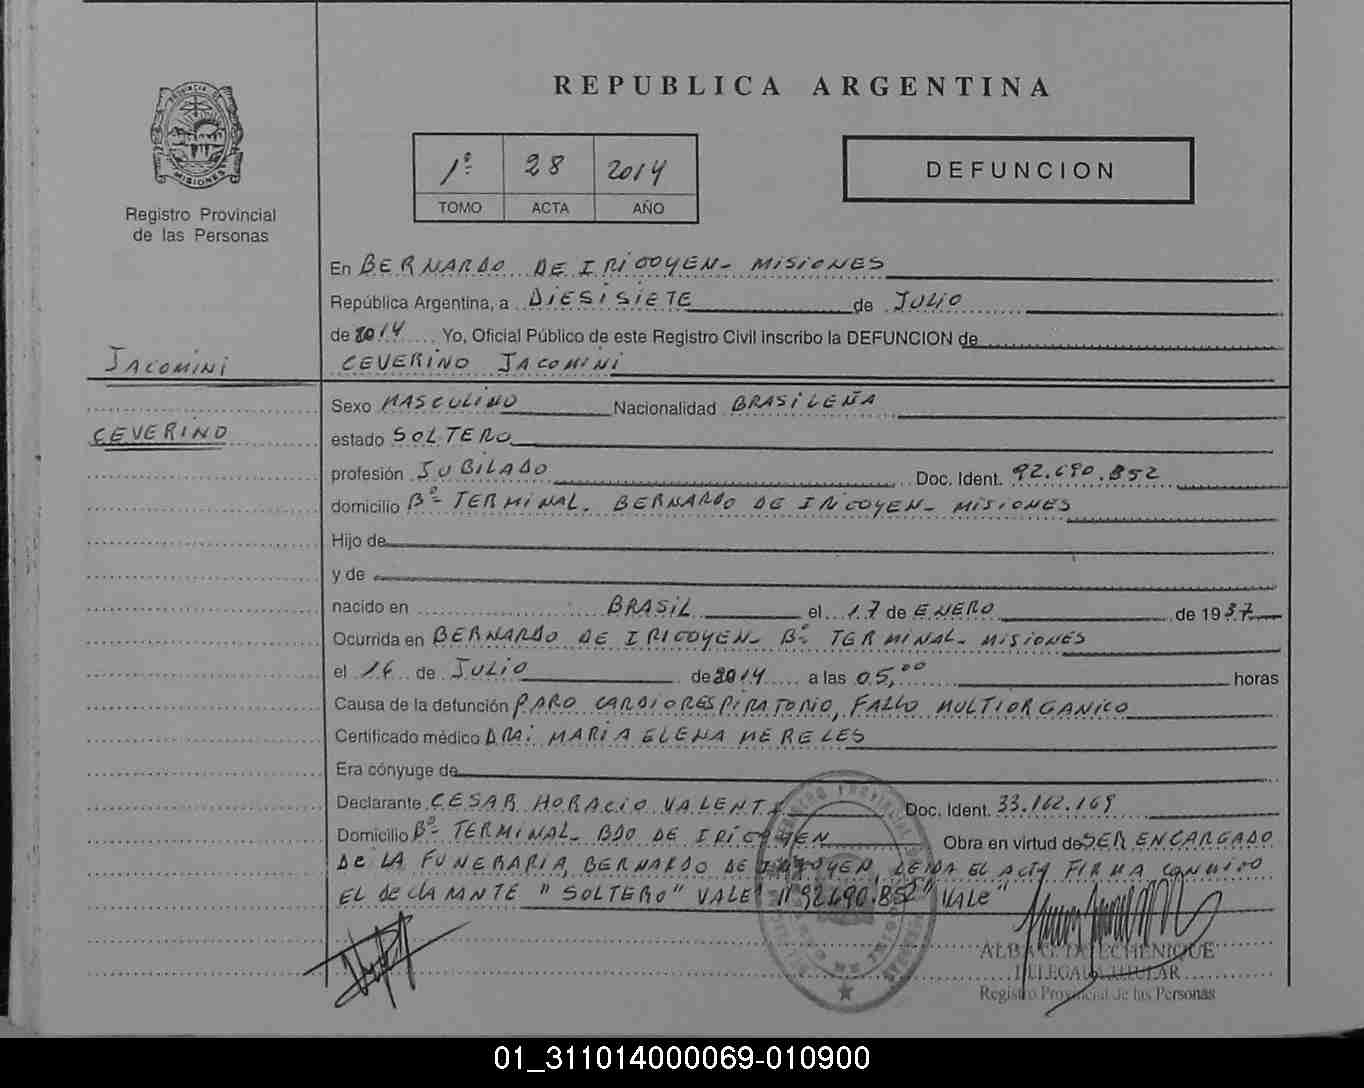 REPUBLICA ARGENTINA
PROVINCIA DE
MISIONES
Registro Provincial
de las Personas
1º 28 2014
TOMO ACTA AÑO
DEFUNCION
En BERNARDO DE IRIGOYEN- MISIONES
República Argentina, a DIESISIETE de JULIO
de 2014 Yo, Oficial Público de este Registro Civil inscribo la DEFUNCION de
JACOMINI
CEVERINO JACOMINI
Sexo MASCULINO Nacionalidad BRASILEÑA
CEVERINO
estado SOLTERO
profesión JUBILADO Doc. Ident. 92.690.852
domicilio Bº- TERMINAL. BERNARDO DE IRIGOYEN- MISIONES
Hijo de
y de
nacido en BRASIL el 17 de ENERO de 1937
Ocurrida en BERNARDO DE IRIGOYEN- Bº TERMINAL- MISIONES
el 16 de JULIO de 2014 a las 05,00 horas
Causa de la defunción PARO CARDIORESPIRATORIO, FALLO MULTIORGANICO
Certificado médico DRA: MARIA ELENA MERELES
Era cónyuge de
Declarante CESAR HORACIO VALENTI Doc. Ident. 33.162.169
Domicilio Bº- TERMINAL- BDO DE IRIGOYEN Obra en virtud de SER ENCARGADO
DE LA FUNERARIA, BERNARDO DE IRIGOYEN, LEIDA EL ACTA FIRMA CONMIGO
EL DECLARANTE "SOLTERO" VALE "92690.852" VALE"
ALBA G. DE ECHENIQUE
DELEGADA TITULAR
Registro Provincial de las Personas
01_311014000069-010900